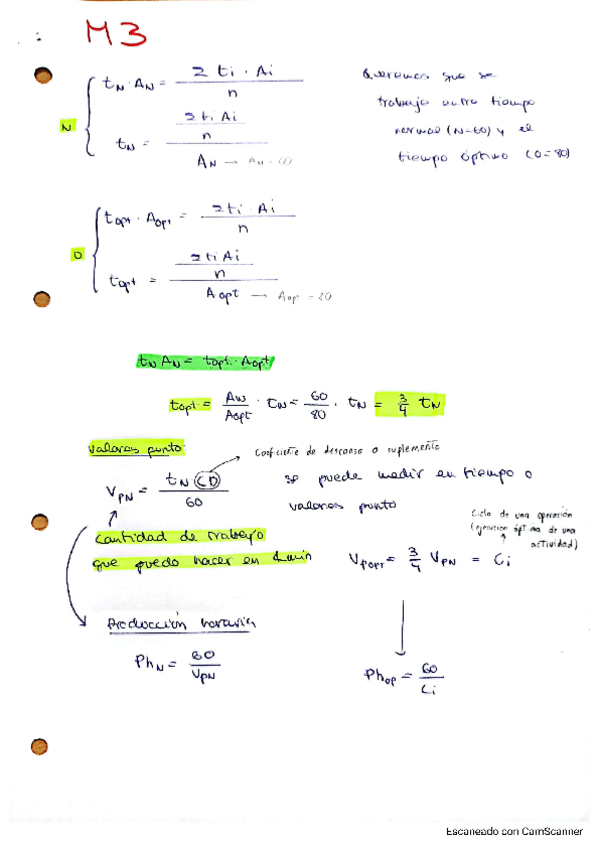 : M3
N
t_N · A_N = 2 ti · Ai / n
t_N = (2 ti Ai / n) / A_N → A_N = 60
Queremos que se
trabaje entre tiempo
normal (N=60) y el
tiempo óptimo (O=80)
O
topt · Aopt = 2 ti · Ai / n
topt = (2 ti Ai / n) / Aopt → Aopt = 80
t_N A_N = topt · Aopt
topt = A_N / Aopt · t_N = 60 / 80 · t_N = 3/4 t_N
Valores punto:
Coeficiente de descanso o suplemento
V_PN = t_N CD / 60
se puede medir en tiempo o
valores punto
Cantidad de trabajo
que puedo hacer en 1 min
Ciclo de una operación
(ejecución óptima de una
actividad)
V_Popt = 3/4 V_PN = Ci
Producción horaria
Ph_N = 60 / V_PN
Ph_op = 60 / Ci
Escaneado con CamScanner